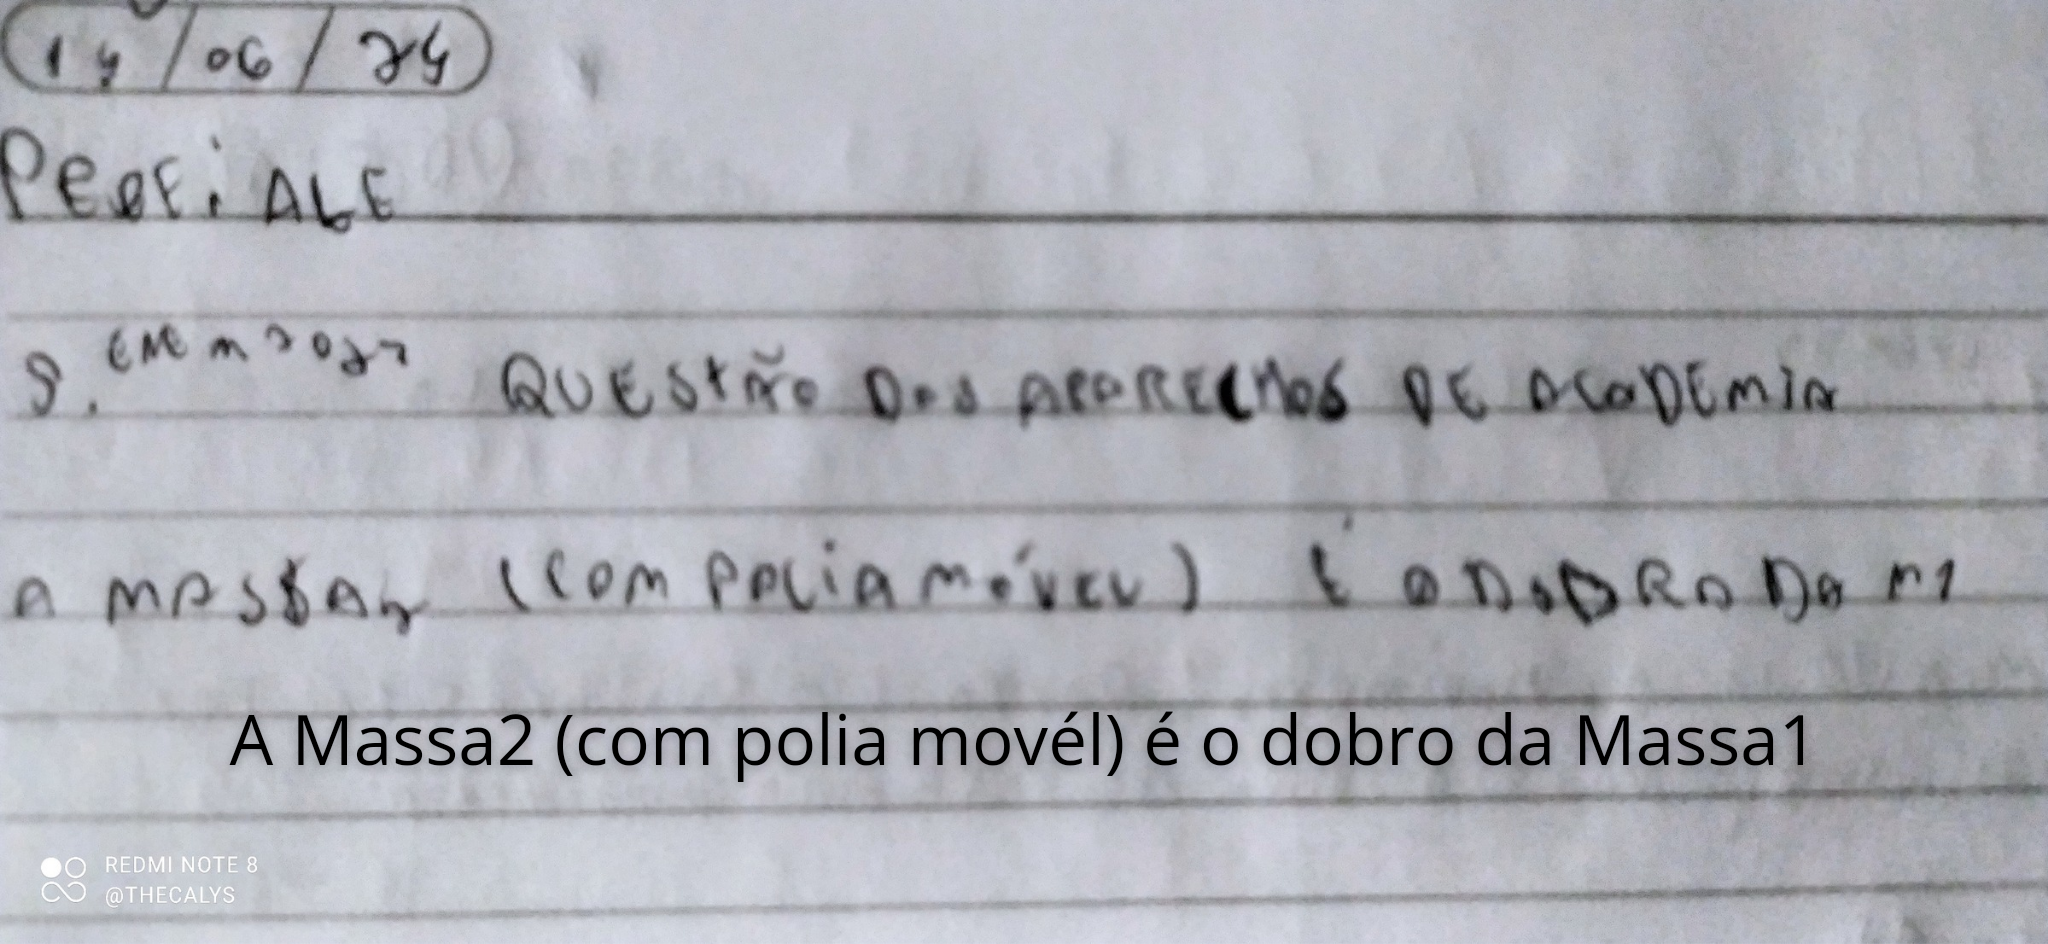 14/06/24
PROF: ALE
9. ENEM 2021 QUESTÃO DOS APARELHOS DE ACADEMIA
A MASSA2 (COM POLIA MÓVEL) É O DOBRO DA M1
A Massa2 (com polia movél) é o dobro da Massa1
REDMI NOTE 8
@THECALYS